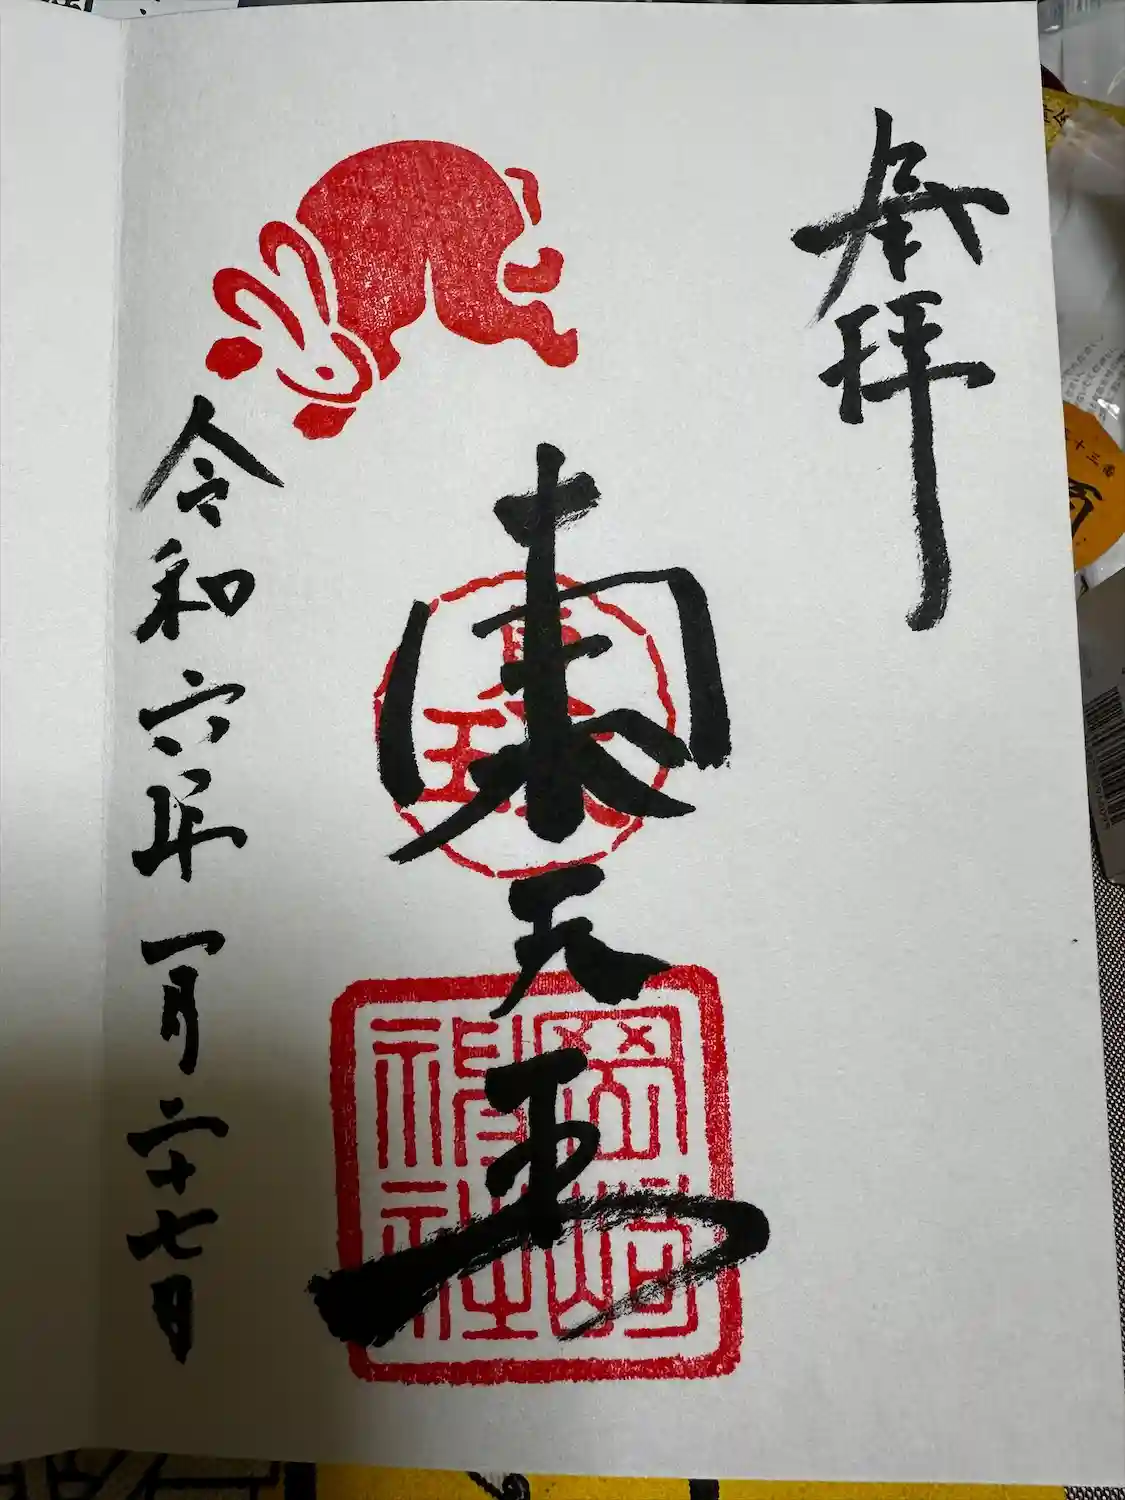 奉拝
東天王
岡崎神社
令和六年一月二十七日